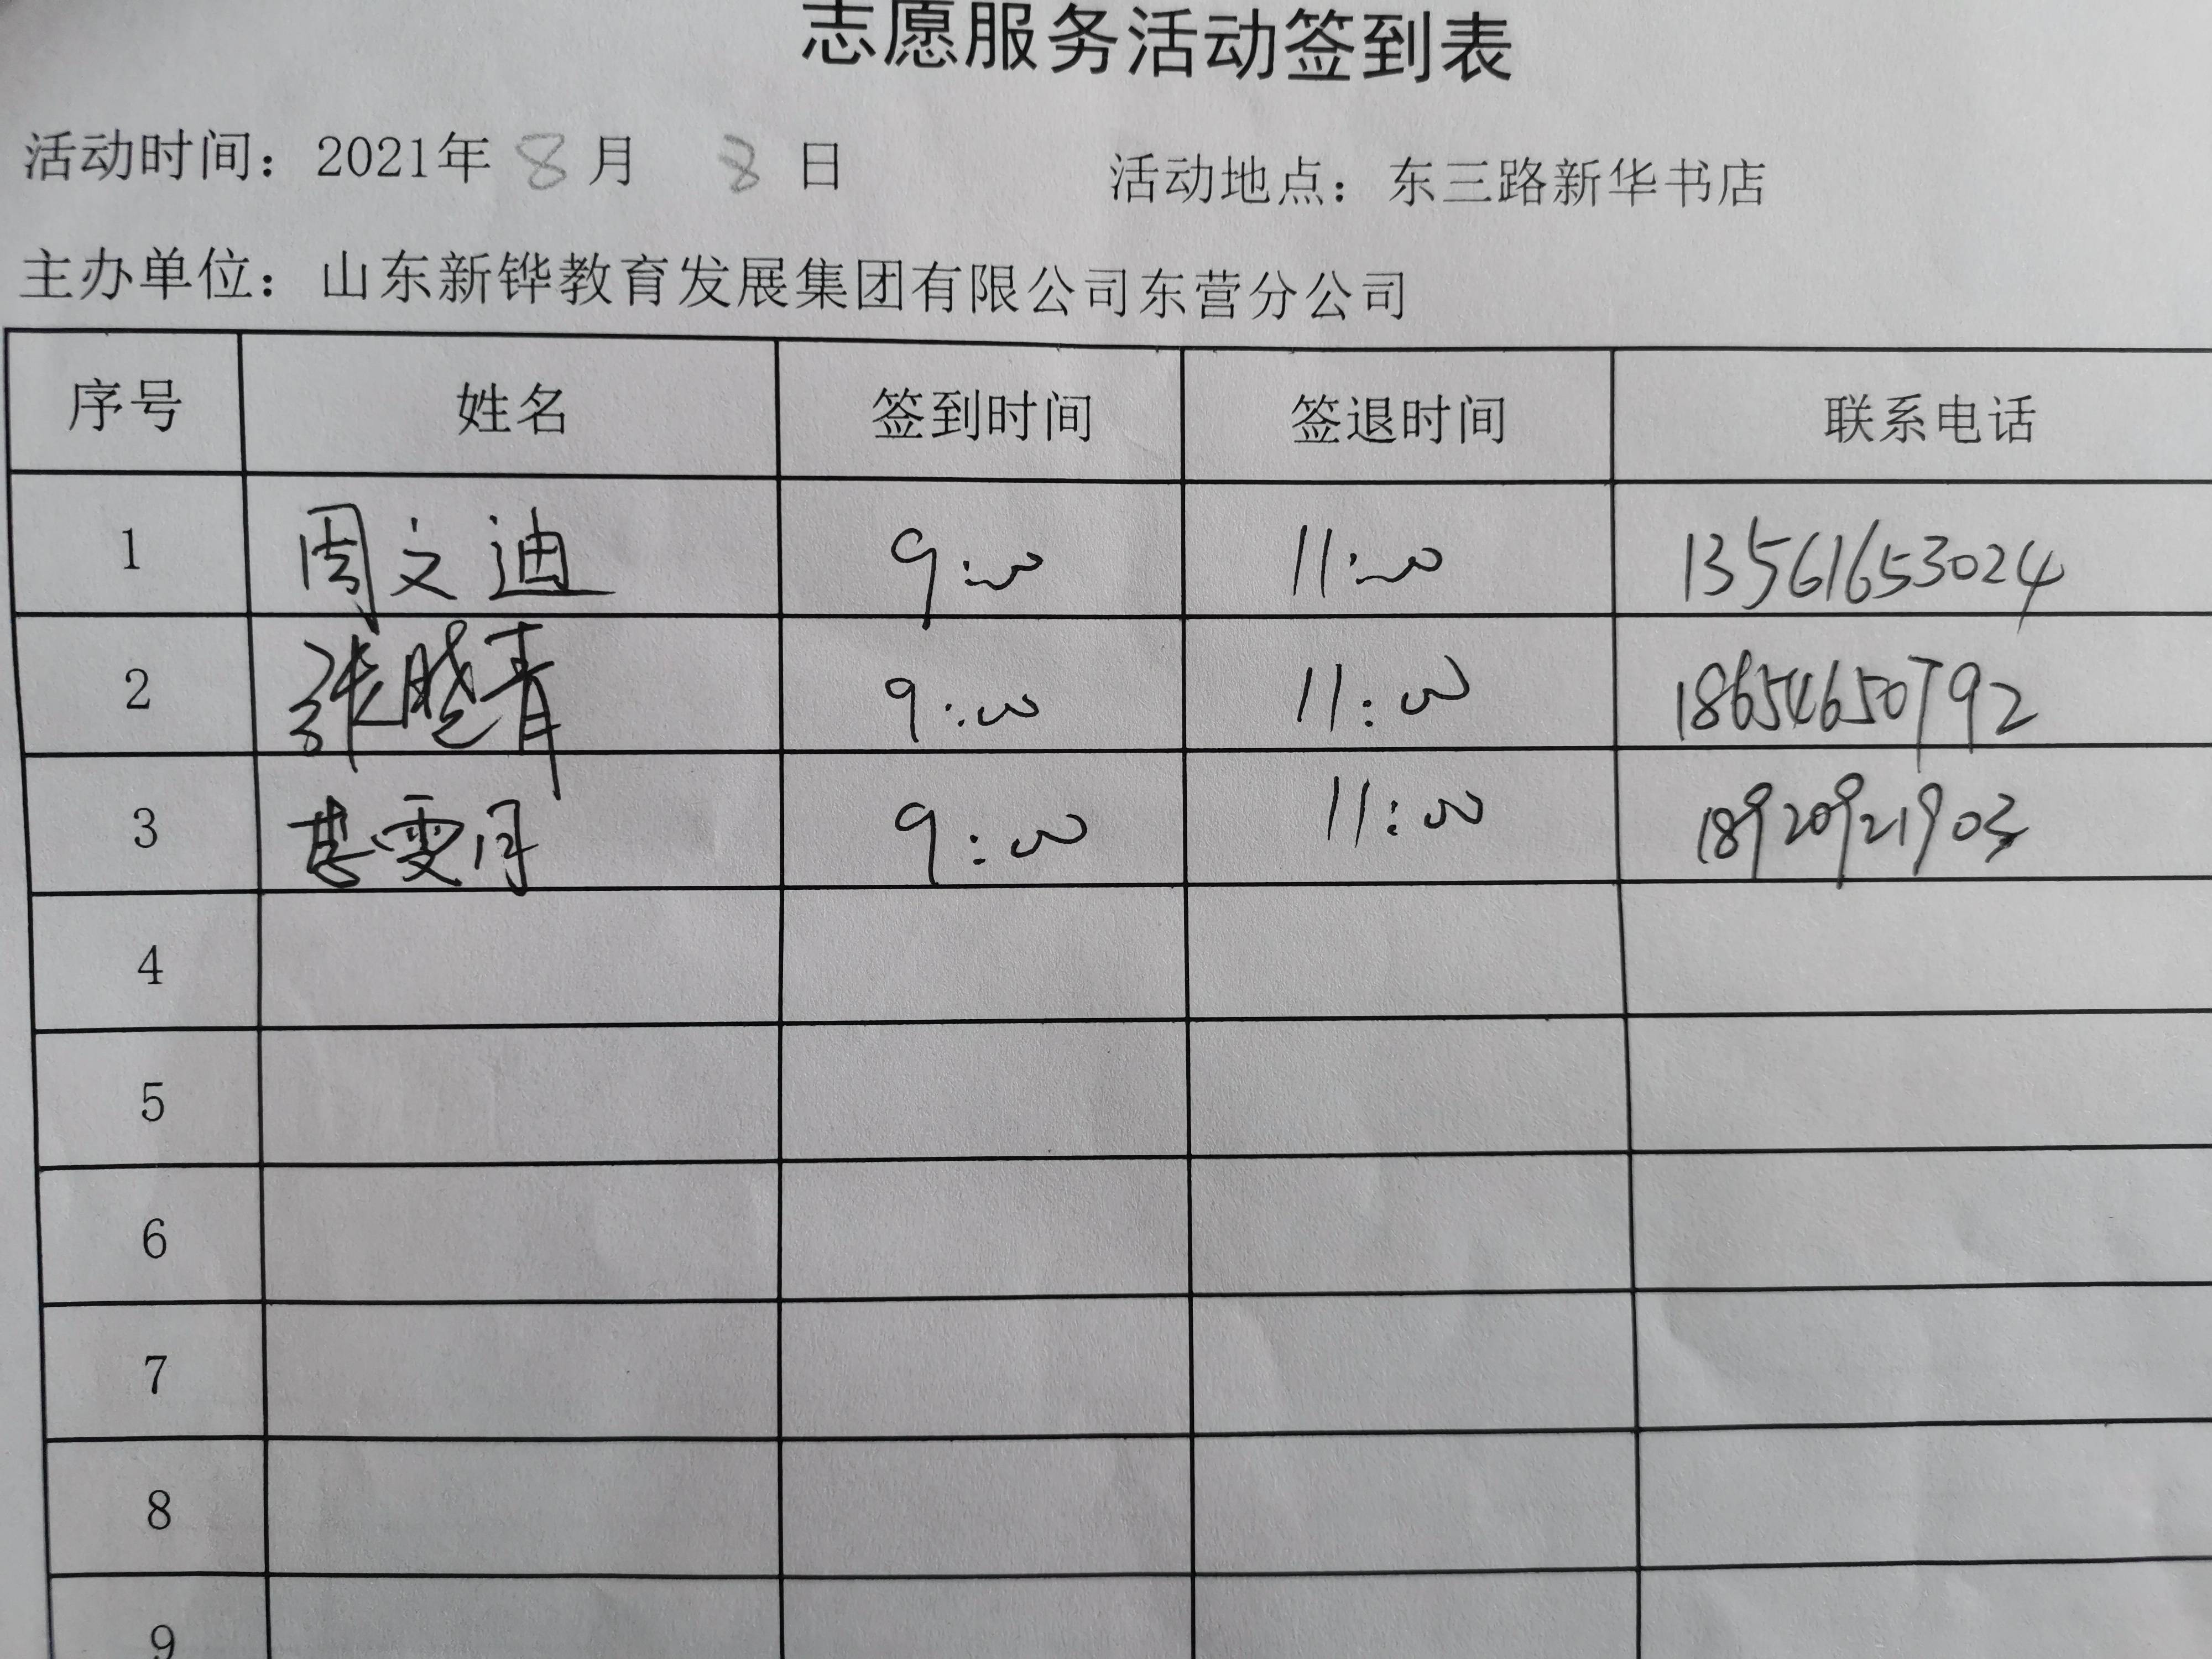 志愿服务活动签到表
活动时间：2021年 8 月 8 日 活动地点：东三路新华书店
主办单位：山东新铧教育发展集团有限公司东营分公司
序号 姓名 签到时间 签退时间 联系电话
1 周文迪 9:00 11:00 13561653024
2 张晓青 9:00 11:00 18654650792
3 9:00 11:00 18920921903
4
5
6
7
8
9